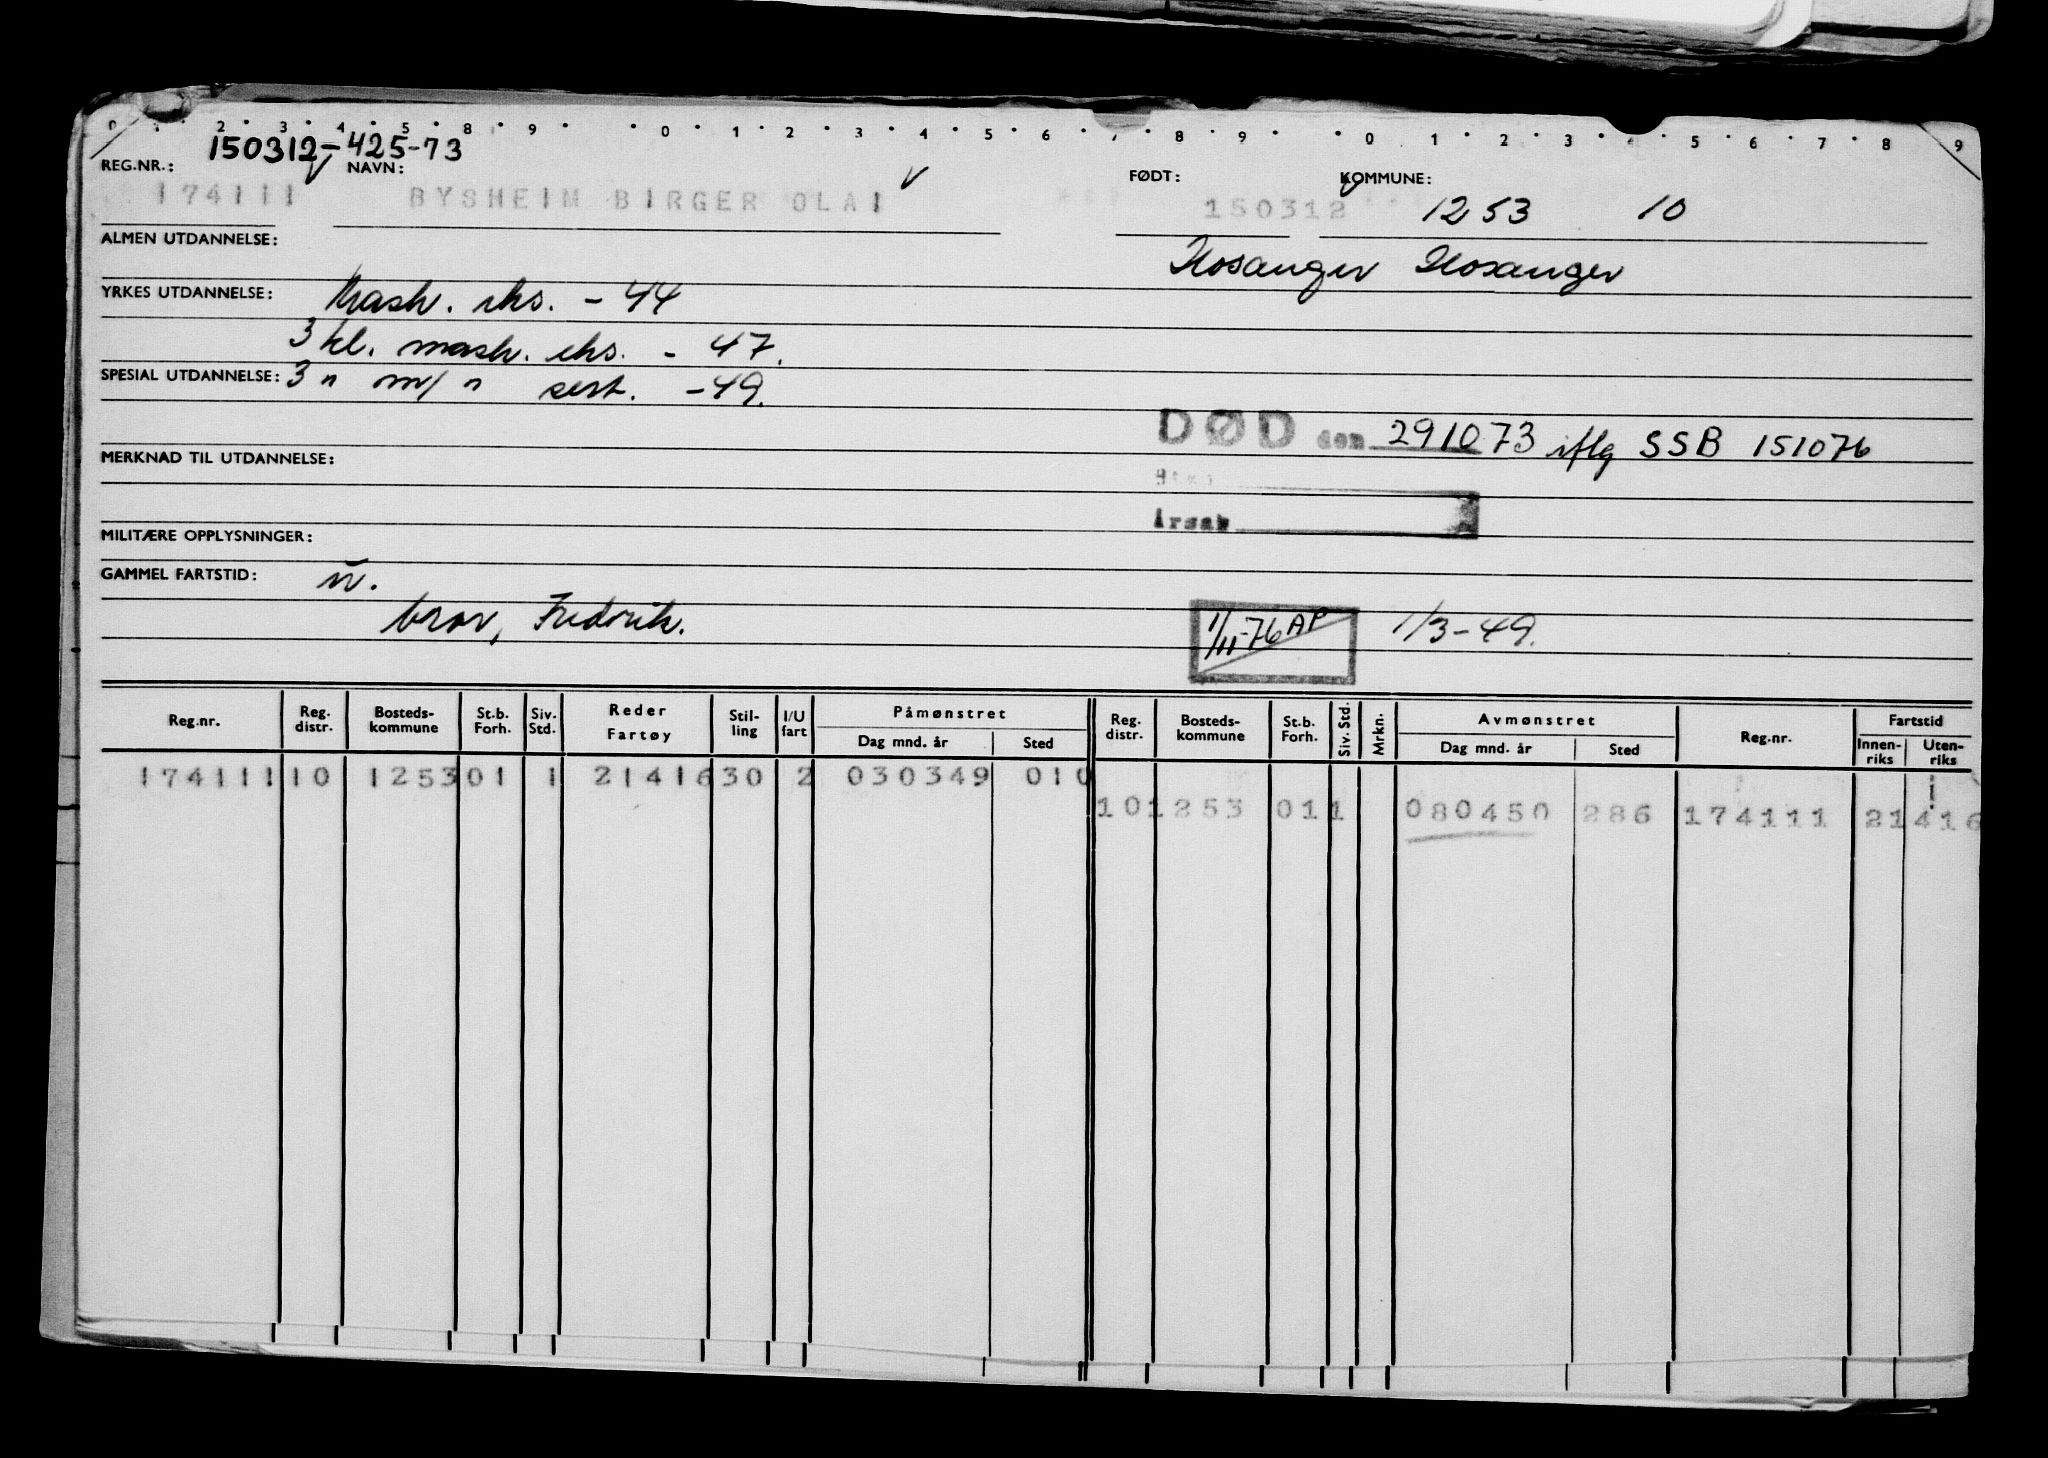 0 2 3 4 5 8 9 0 1 2 3 4 5 6 8 9 0 1 2 3 4 5 6 7 8 9
150312-425-73
REG.NR.: NAVN: FØDT: KOMMUNE:
174111 BYSHEIM BIRGER OLAI 150312 1253 10
ALMEN UTDANNELSE: Hosanger Hosanger
YRKES UTDANNELSE: Mask. eks. - 44
3 kl. mask. eks. - 47.
SPESIAL UTDANNELSE: 3 " m/ " sert. - 49.
DØD den 291073 iflg SSB 151076
MERKNAD TIL UTDANNELSE:
Årsak
MILITÆRE OPPLYSNINGER:
GAMMEL FARTSTID:
bror, Fredrik. 1/11-76 AP 1/3-49.
Reg.nr. Reg. distr. Bosteds-kommune St.b. Forh. Siv. Std. Reder Fartøy Stil-ling I/U fart Påmønstret Dag mnd. år Sted Reg. distr. Bosteds-kommune St.b. Forh. Siv. Std. Mrkn. Avmønstret Dag mnd. år Sted Reg.nr. Fartstid Innen-riks Uten-riks
174111 10 1253 01 1 21416 30 2 030349 010
10 1253 01 1 080450 286 174111 21416